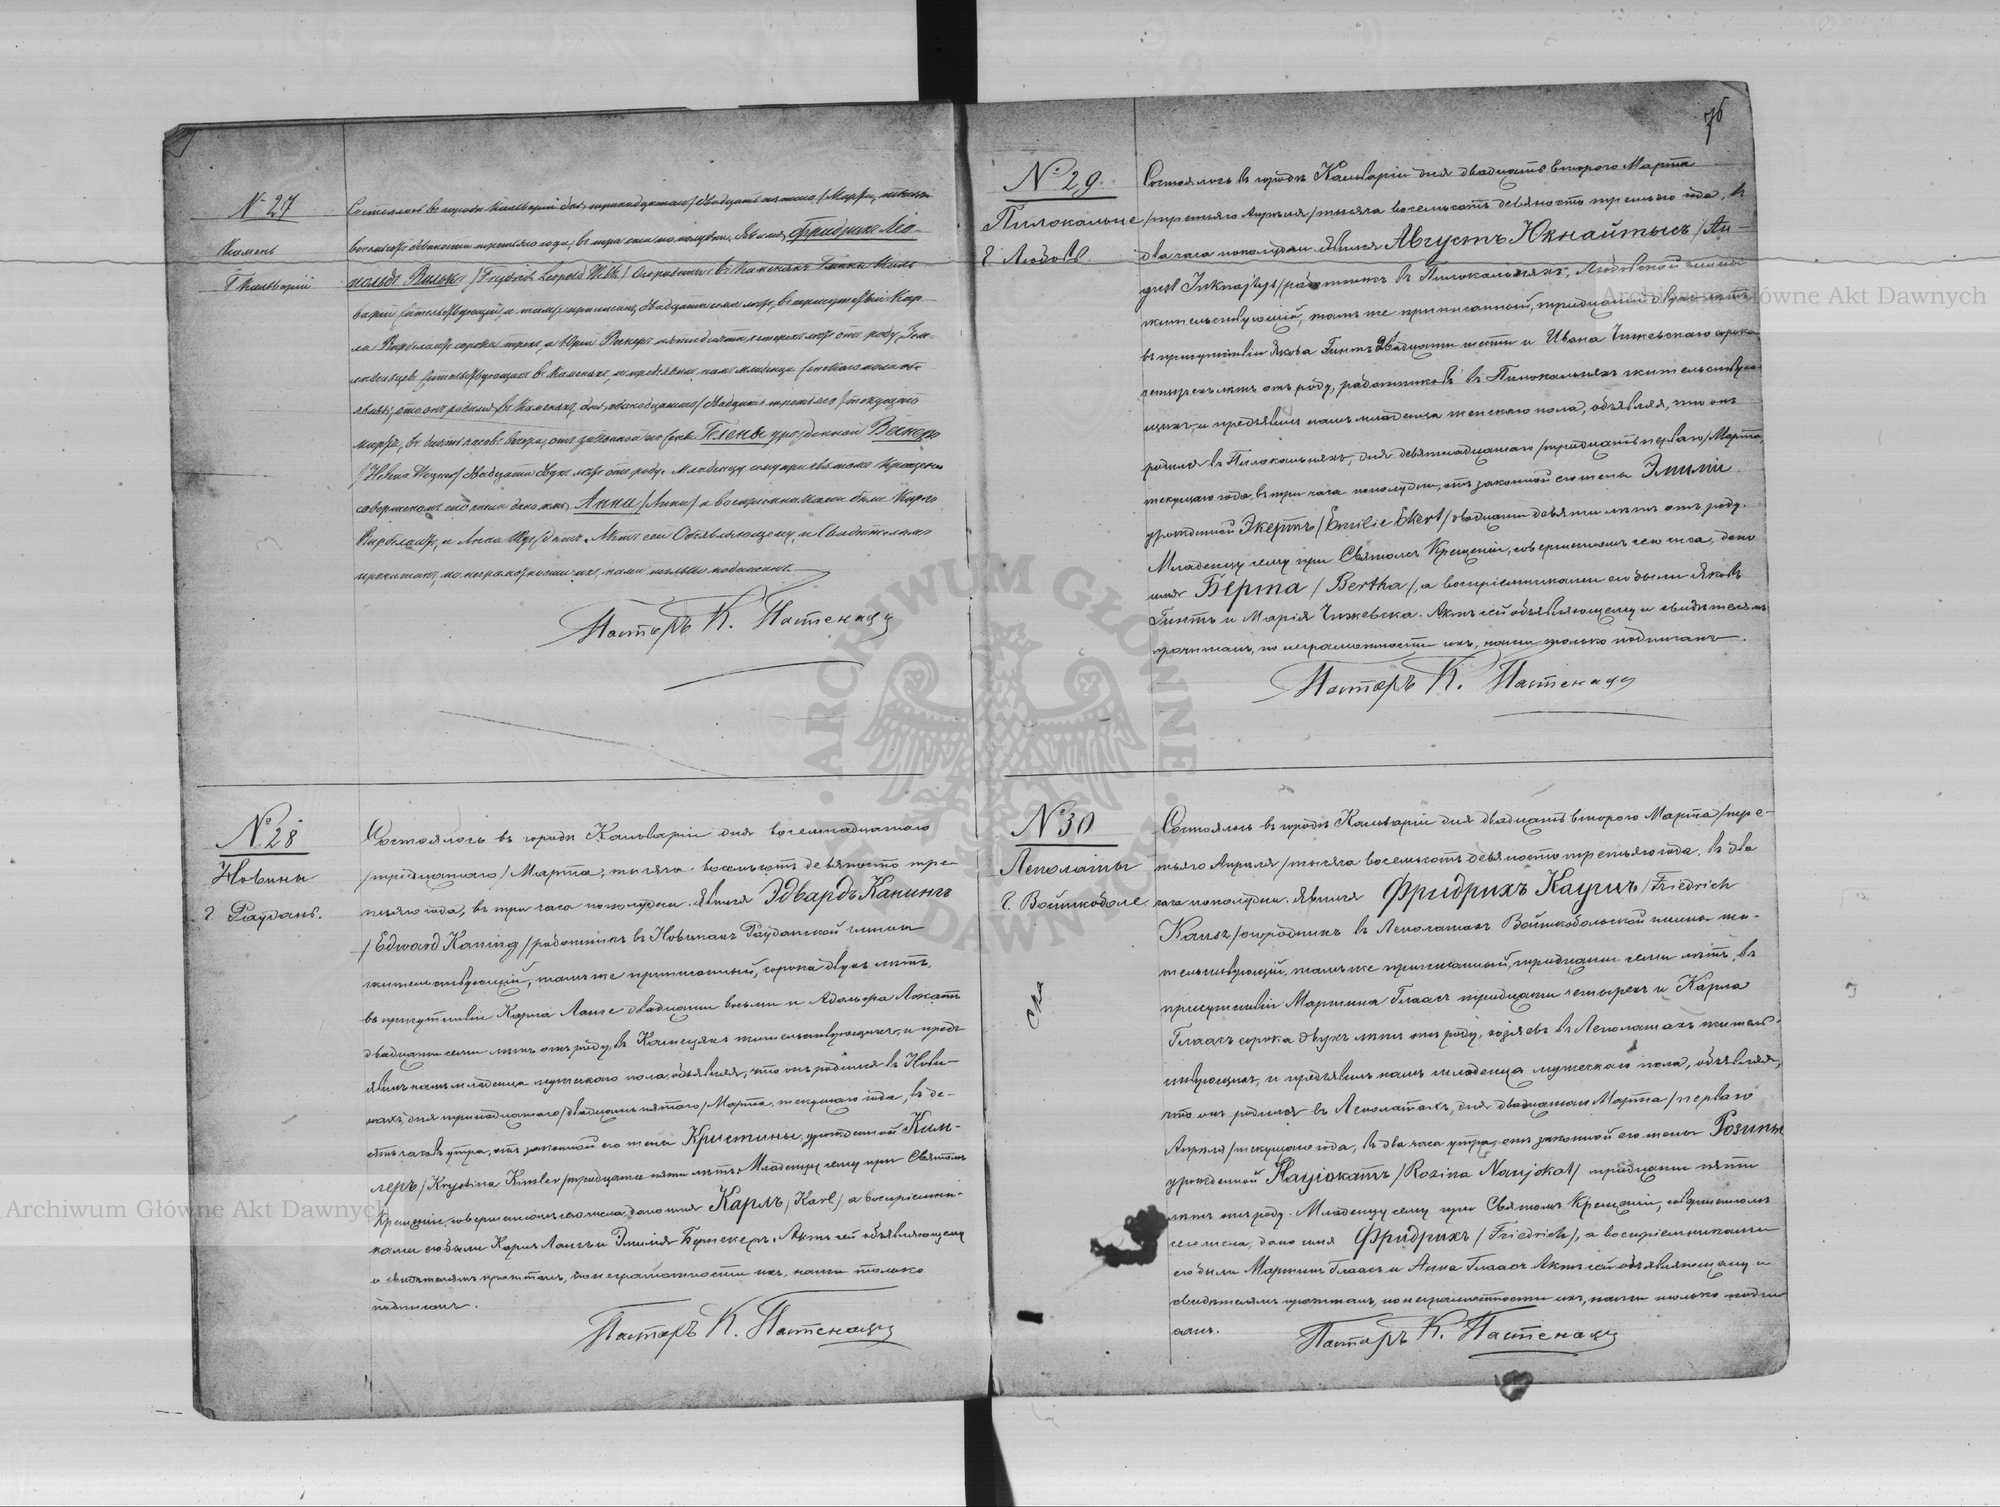 № 27
Камень
Г. Кальварiи
Состоялось въ городѣ Кальварiи дня тринадцатаго /двадцать пятаго/ Марта, тысяча
восемьсотъ девяносто третьяго года, въ три часа по полудни. Явился Фридрихъ Лео-
польдъ Вилькъ /Fridrich Leopold Wilk/ въ Каменахъ Гмины Каль
варiи жительствующiй, и тамъ приписанъ, двадцати семи лѣтъ, въ присутствiи Кар-
ла сорока трехъ, и Юрiя пятидесяти лѣтъ отъ роду,
жительствующихъ въ Каменахъ, и предъявилъ намъ младенца женскаго пола объ-
являя, что онъ родился въ Каменахъ, дня одинадцатаго /двадцать третьяго/ текущаго
марта, въ часовъ вечера, отъ законной его жены Гелены урожденной
/Helena двадцати двухъ лѣтъ отъ роду. Младенцу сему при Святомъ Крещенiи
совершенномъ сего числа дано имя Анна /Anna/ а воспрiемниками были Карлъ
и Анна Актъ сей Объявляющему, и Свидѣтелямъ
прочитанъ, по неграмотности ихъ, нами только подписанъ.
Пасторъ К. Пастенаци
№ 28
Новины
г. Раудань.
Состоялось въ городѣ Кальварiи дня восемнадцатаго
/тридцатаго/ Марта, тысяча восемьсотъ девяносто тре-
тьяго года, въ три часа пополудни. Явился Эдвардъ Канингъ
/Edward Kaning/ работникъ въ Новинахъ Рауданской гмины
жительствующiй, тамъ же приписанный, сорока двухъ лѣтъ,
въ присутствiи Карла Ланге двадцати восьми и Адольфа
двадцати семи лѣтъ отъ роду, въ жительствующихъ, и предъ-
явилъ намъ младенца мужескаго пола, объявляя, что онъ родился въ Нови-
нахъ, дня тринадцатаго /двадцать пятаго/ Марта, текущаго года, въ де-
сять часовъ утра, отъ законной его жены Кристины, урожденной Ким-
леръ /Krystina Kimler/ тридцати пяти лѣтъ. Младенцу сему при Святомъ
Крещенiи, совершенномъ сего числа, дано имя Карлъ /Karl/, а воспрiемни-
ками его были Карлъ Ланге и Эмилiя Актъ сей объявляющему
и свидѣтелямъ прочитанъ, по неграмотности ихъ, нами только
подписанъ.
Пасторъ К. Пастенаци
76
№ 29.
Пилокальне
г. Любовъ
Состоялось въ городѣ Кальварiи дня двадцать втораго Марта
/третьяго Апрѣля/ тысяча восемьсотъ девяносто третьяго года, въ
два часа пополудни. Явился Августъ Юкнайтысъ /Au-
gust Juknajtys/ работникъ въ Пилокальняхъ, Любовской гмины
жительствующiй, тамъ же приписанный, тридцати двухъ лѣтъ
въ присутствiи Якова Гинтъ двадцати шести и Ивана Чижевскаго сорока
четырехъ лѣтъ отъ роду, работниковъ въ Пилокальняхъ жительствую-
щихъ, и предъявилъ намъ младенца женскаго пола, объявляя, что онъ
родился въ Пилокальняхъ, дня девятнадцатаго /тридцать перваго/ Марта,
текущаго года, въ три часа пополудни, отъ законной его жены Эмилiи
урожденной Экертъ /Emilie Ekert/ двадцати девяти лѣтъ отъ роду.
Младенцу сему при Святомъ Крещенiи, совершенномъ сего числа, дано
имя Берта /Bertha/, а воспрiемниками его были Яковъ
Гинтъ и Марiя Чижевска. Актъ сей объявляющему и свидѣтелямъ
прочитанъ, по неграмотности ихъ, нами только подписанъ.
Пасторъ К. Пастенаци
№ 30
Леполаты
г. Войткоболе
Состоялось въ городѣ Кальварiи дня двадцать втораго Марта /тре-
тьяго Апрѣля/ тысяча восемьсотъ девяносто третьяго года, въ два
часа пополудни. Явился Фридрихъ Каушъ /Friedrich
Kausz/ огородникъ въ Леполатахъ Войткобольской гмины жи-
тельствующiй, тамъ же приписанный, тридцати семи лѣтъ, въ
присутствiи Мартина Глаасъ тридцати четырехъ и Карла
Глаасъ сорока двухъ лѣтъ отъ роду, хозяевъ въ Леполатахъ житель-
ствующихъ, и предъявилъ намъ младенца мужескаго пола, объявляя,
что онъ родился въ Леполатахъ, дня двадцатаго Марта /перваго
Апрѣля/ текущаго года, въ два часа утра, отъ законной его жены Розины
урожденной Науiокатъ /Rozina Naujokat/ тридцати пяти
лѣтъ отъ роду. Младенцу сему при Святомъ Крещенiи, совершенномъ
сего числа, дано имя Фридрихъ /Friedrich/, а воспрiемниками
его были Мартинъ Глаасъ и Анна Глаасъ Актъ сей объявляющему и
свидѣтелямъ прочитанъ, по неграмотности ихъ, нами только подпи
санъ.
Пасторъ К. Пастенаци
Archiwum Główne Akt Dawnych
Archiwum Główne Akt Dawnych
ARCHIWUM GŁÓWNE AKT DAWNYCH